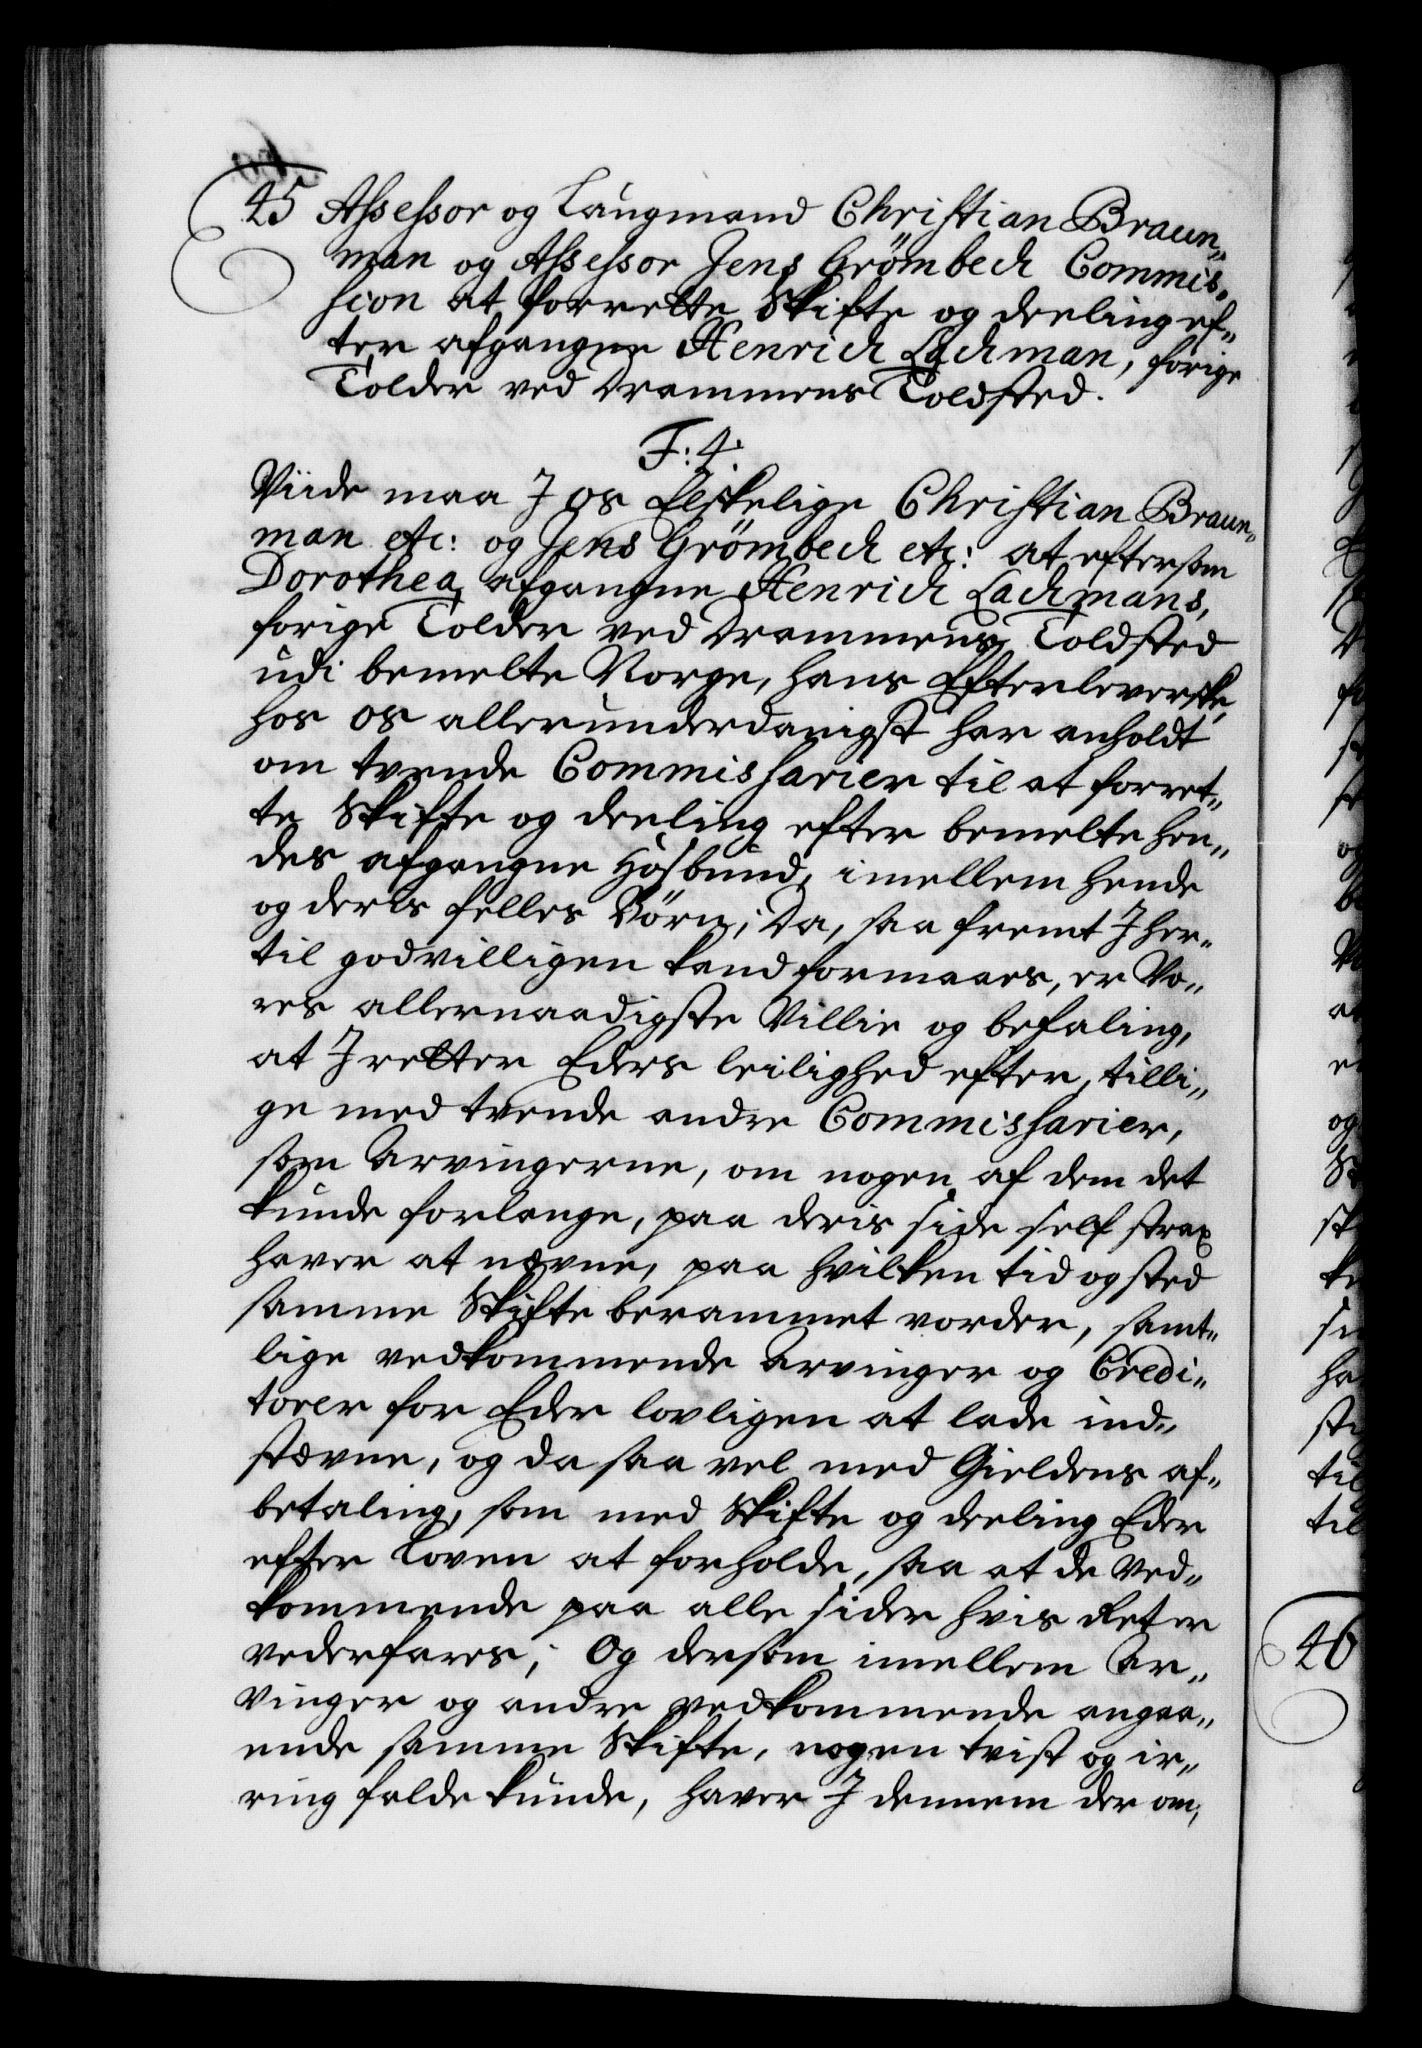 45 Assessor og Laugmand Christian Braun„
man og Assessor Jens Grömbech Commis„
sion at forrette Skifte og deeling ef„
ter afgangne Henrich Lachman, forige
Tolder ved Drammens Toldsted.
F: 4.
Viide maa I os Elskelige Christian Braun„
man etc: og Jens Grömbech etc: at eftersom
Dorothea, afgangne Henrich Lachmans,
forige Tolder ved Drammens Toldsted
udi bemelte Norge, hans Efterleverske,
hos os allerunderdanigst har anholdt
om tvende Commissarier til at forret„
te Skifte og deeling efter bemelte hen„
des afgangne Hosbund, imellem hende
og deris felles Börn; Da, saa fremt I her„
til godvilligen kand formaaes, er Vo„
res allernaadigste Villie og befaling,
at I retter Eders leilighed efter, tilli„
ge med tvende andre Commissarier,
som Arvingerne, om nogen af dem det
kunde forlange, paa deris side self strax
haver at nevne, paa hvilken tid og sted
samme Skifte berammet vorder, samt„
lige vedkommende Arvinger og Credi„
torer for Eder lovligen at lade ind„
stevne, og da saa vel med Gieldens af„
betaling, som med Skifte og deeling Eder
efter Loven at forholde, saa at de Ved„
kommende paa alle sider hvis Ret er
vederfares; Og dersom imellem Ar„
vinger og andre vedkommende angaa„
ende samme Skifte, nogen tvist og ir„
ring falde kunde, haver I dennem der om,
46